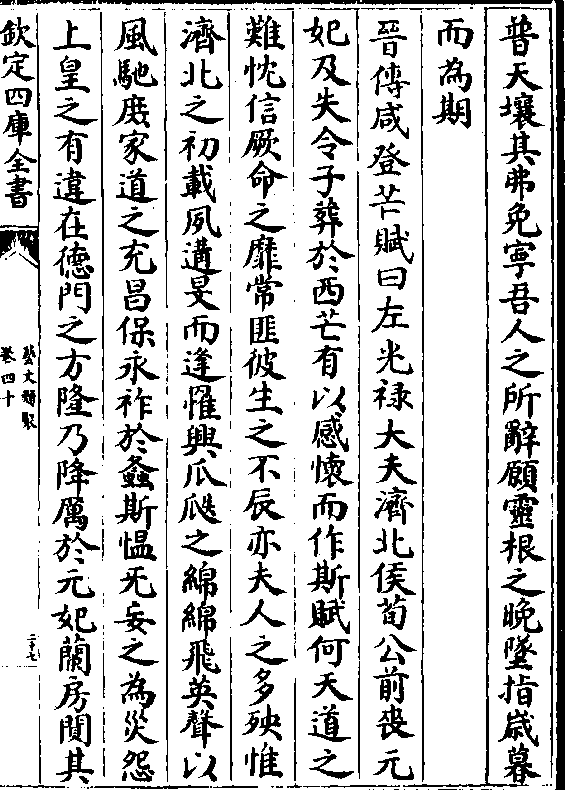 普天壤其弗免寧吾人之所辭願靈根之晚墜指嵗暮
而為期
晉傅咸登芒賦曰左光禄大夫濟北侯荀公前丧元
妃及失令子葬於西芒有以感懷而作斯賦何天道之
難忱信厥命之靡常匪彼生之不辰亦夫人之多殃惟
濟北之初載夙遘旻而逢惟興瓜瓞之綿綿飛英聲以
風馳庶家道之充昌保永祚於螽斯愠无妄之為災怨
上皇之有違在德門之方隆乃降厲於元妃蘭房閴其
欽定四庫全書
藝文類聚
卷四十
二十七